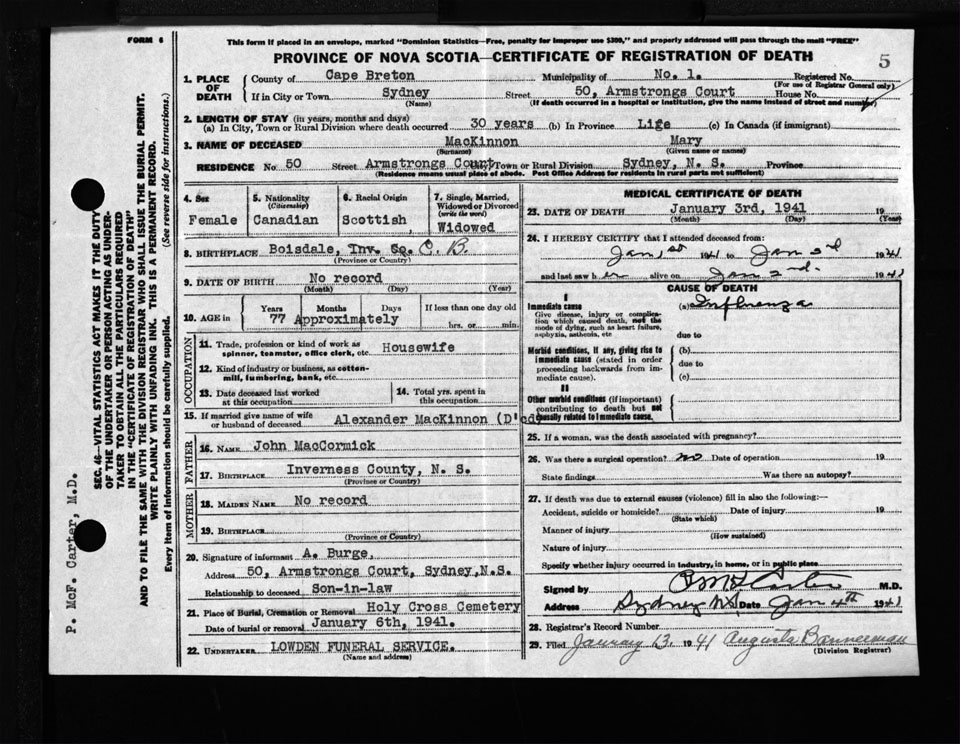 FORM 6
This form if placed in an envelope, marked "Dominion Statistics—Free, penalty for improper use $300," and properly addressed will pass through the mail "FREE"
PROVINCE OF NOVA SCOTIA—CERTIFICATE OF REGISTRATION OF DEATH
5
1. PLACE OF DEATH
County of Cape Breton Municipality of No. 1. Registered No.
(For use of Registrar General only)
If in City or Town Sydney Street 50, Armstrongs Court House No.
(Name) (If death occurred in a hospital or institution, give the name instead of street and number)
2. LENGTH OF STAY (in years, months and days)
(a) In City, Town or Rural Division where death occurred 30 years (b) In Province Life (c) In Canada (if immigrant)
3. NAME OF DECEASED MacKinnon Mary
(Surname) (Given name or names)
RESIDENCE No 50 Street Armstrongs Court City, Town or Rural Division Sydney, N. S. Province
(Residence means usual place of abode. Post Office Address for residents in rural parts not sufficient)
4. Sex
Female
5. Nationality
(Citizenship)
Canadian
6. Racial Origin
Scottish
7. Single, Married,
Widowed or Divorced
(write the word)
Widowed
8. BIRTHPLACE Boisdale, Inv. Co. C. B.
(Province or Country)
9. DATE OF BIRTH No record
(Month) (Day) (Year)
10. AGE in Years Months Days If less than one day old
77 Approximately hrs. or min.
OCCUPATION
11. Trade, profession or kind of work as
spinner, teamster, office clerk, etc. Housewife
12. Kind of industry or business, as cotton-
mill, lumbering, bank, etc.
13. Date deceased last worked
at this occupation
14. Total yrs. spent in
this occupation
15. If married give name of wife
or husband of deceased Alexander MacKinnon (D'cd)
FATHER
16. NAME John MacCormick
17. BIRTHPLACE Inverness County, N. S.
(Province or Country)
MOTHER
18. MAIDEN NAME No record
19. BIRTHPLACE
(Province or Country)
20. Signature of informant A. Burge,
Address 50, Armstrongs Court, Sydney,N.S.
Relationship to deceased Son-in-law
21. Place of Burial, Cremation or Removal Holy Cross Cemetery
Date of burial or removal January 6th, 1941.
22. UNDERTAKER LOWDEN FUNERAL SERVICE.
(Name and address)
MEDICAL CERTIFICATE OF DEATH
23. DATE OF DEATH January 3rd, 1941 19
(Month) (Day) (Year)
24. I HEREBY CERTIFY that I attended deceased from:
Jan 1st 1941 to Jan 2nd 1941
and last saw her alive on Jan 2nd. 1941
CAUSE OF DEATH
I
Immediate cause (a) Influenza
Give disease, injury or complica-
tion which caused death, not the
mode of dying, such as heart failure,
asphyxia, asthenia, etc due to
Morbid conditions, if any, giving rise to
immediate cause (stated in order
proceeding backwards from im-
mediate cause).
(b)
due to
(c)
II
Other morbid conditions (if important)
contributing to death but not
causally related to immediate cause.
25. If a woman, was the death associated with pregnancy?
26. Was there a surgical operation? no Date of operation 19
State findings Was there an autopsy?
27. If death was due to external causes (violence) fill in also the following:—
Accident, suicide or homicide? Date of injury 19
(State which)
Manner of injury
(How sustained)
Nature of injury
Specify whether injury occurred in industry, in home, or in public place
Signed by P McF Carter M.D.
Address Sydney N.S. Date Jan 4th 1941
28. Registrar's Record Number
29. Filed January 13 1941 Augusta Bannerman
(Division Registrar)
SEC. 46—VITAL STATISTICS ACT MAKES IT THE DUTY
OF THE UNDERTAKER OR PERSON ACTING AS UNDER-
TAKER TO OBTAIN ALL THE PARTICULARS REQUIRED
IN THE "CERTIFICATE OF REGISTRATION OF DEATH"
AND TO FILE THE SAME WITH THE DIVISION REGISTRAR WHO SHALL ISSUE THE BURIAL PERMIT.
WRITE PLAINLY WITH UNFADING INK. THIS IS A PERMANENT RECORD.
Every item of information should be carefully supplied. (See reverse side for instructions.)
P. McF. Carter, M.D.